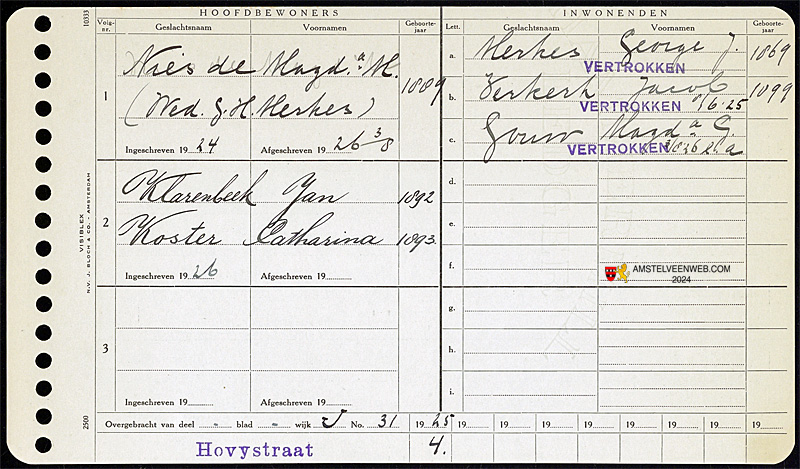 HOOFDBEWONERS
INWONENDEN
Volg-nr.
Geslachtsnaam
Voornamen
Geboorte-jaar
Lett.
Geslachtsnaam
Voornamen
Geboorte-jaar
1
Nies de Magd.a M. 1889
(Wed. G.H. Merkes)
Ingeschreven 19 24
Afgeschreven 19 26 3/8
a. Merkes George J. 1869
VERTROKKEN
b. Verkerk Jacob 1899
VERTROKKEN 6·25
c. Gouw Magd.a G.
VERTROKKEN
2
Klarenbeek Jan 1892
Koster Catharina 1893.
Ingeschreven 19 26
Afgeschreven 19
d.
e.
f.
AMSTELVEENWEB.COM
2024
3
Ingeschreven 19
Afgeschreven 19
g.
h.
i.
Overgebracht van deel " blad " wijk J No. 31 19 25 19 19 19 19 19 19 19
Hovystraat 4.
10333
VISIBLEX
N.V. J. BLOCH & CO. - AMSTERDAM
2500